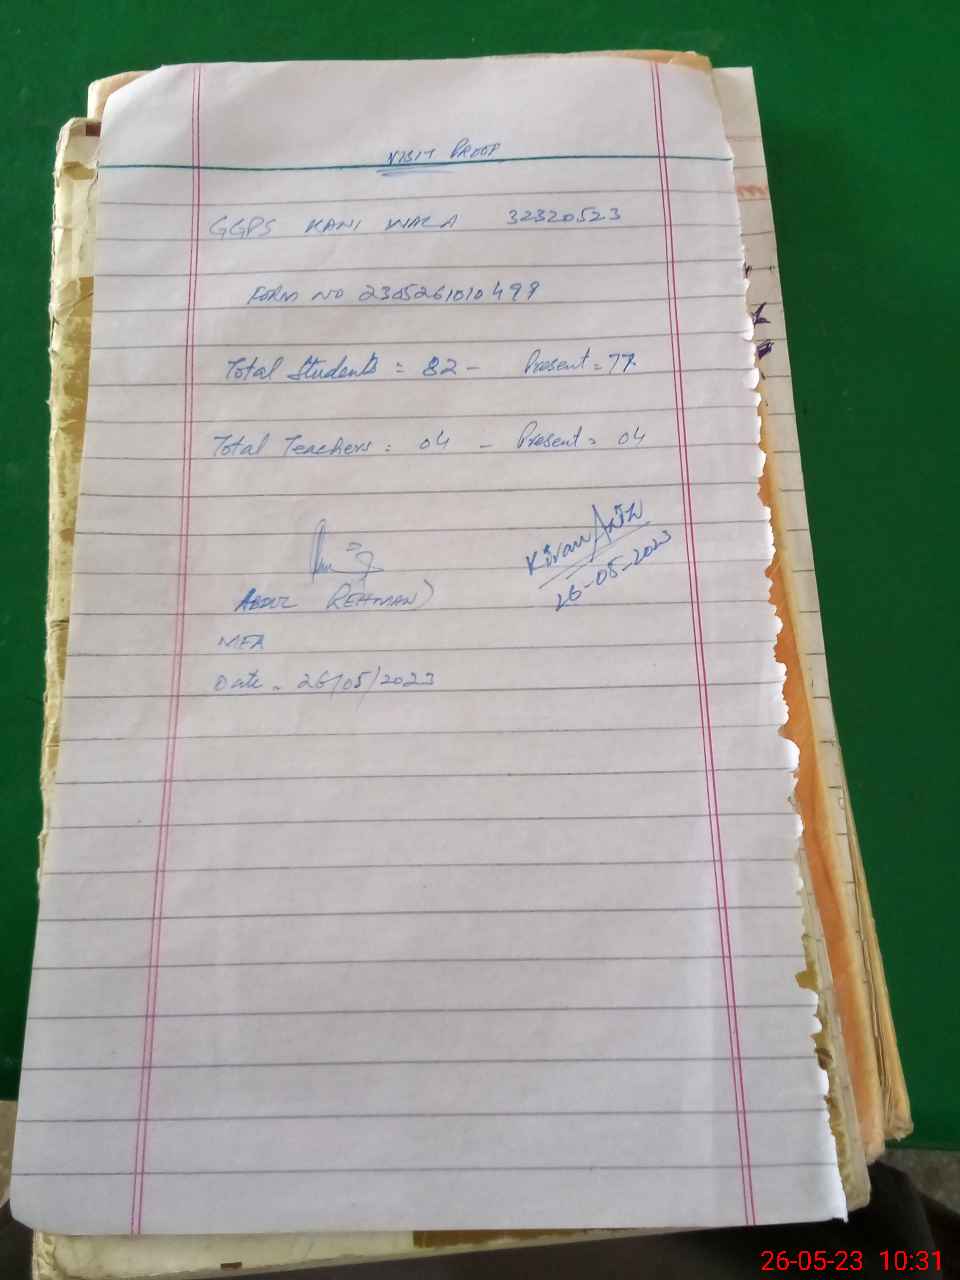 VISIT PROOF
GGPS KANI WALA 32320523
FORM NO 2305261010498
Total Students = 82 - Present = 77.
Total Teachers = 04 - Present = 04
Kiran
26-05-2023
ABDUL REHMAN)
MEA
Date = 26/05/2023
26-05-23 10:31